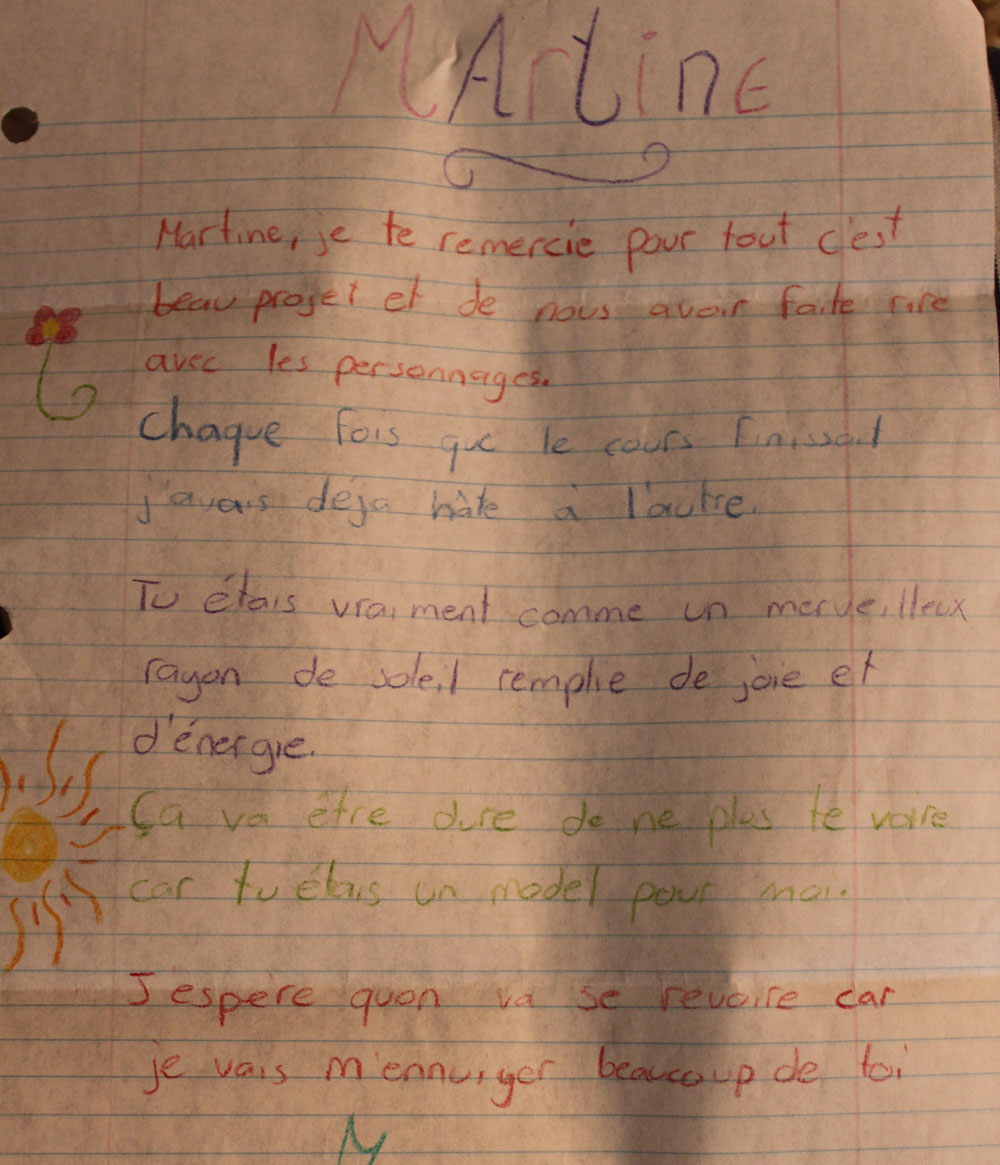 MArtinE
Martine, je te remercie pour tout c'est
beau projet et de nous avoir faite rire
avec les personnages.
Chaque fois que le cours finissait
j'avais déja hâte à l'autre.
Tu étais vraiment comme un merveilleux
rayon de soleil remplie de joie et
d'énergie.
Ça va être dure de ne plus te voire
car tu étais un model pour moi.
J'espère quon va se revoire car
je vais m'ennuyer beaucoup de toi
M